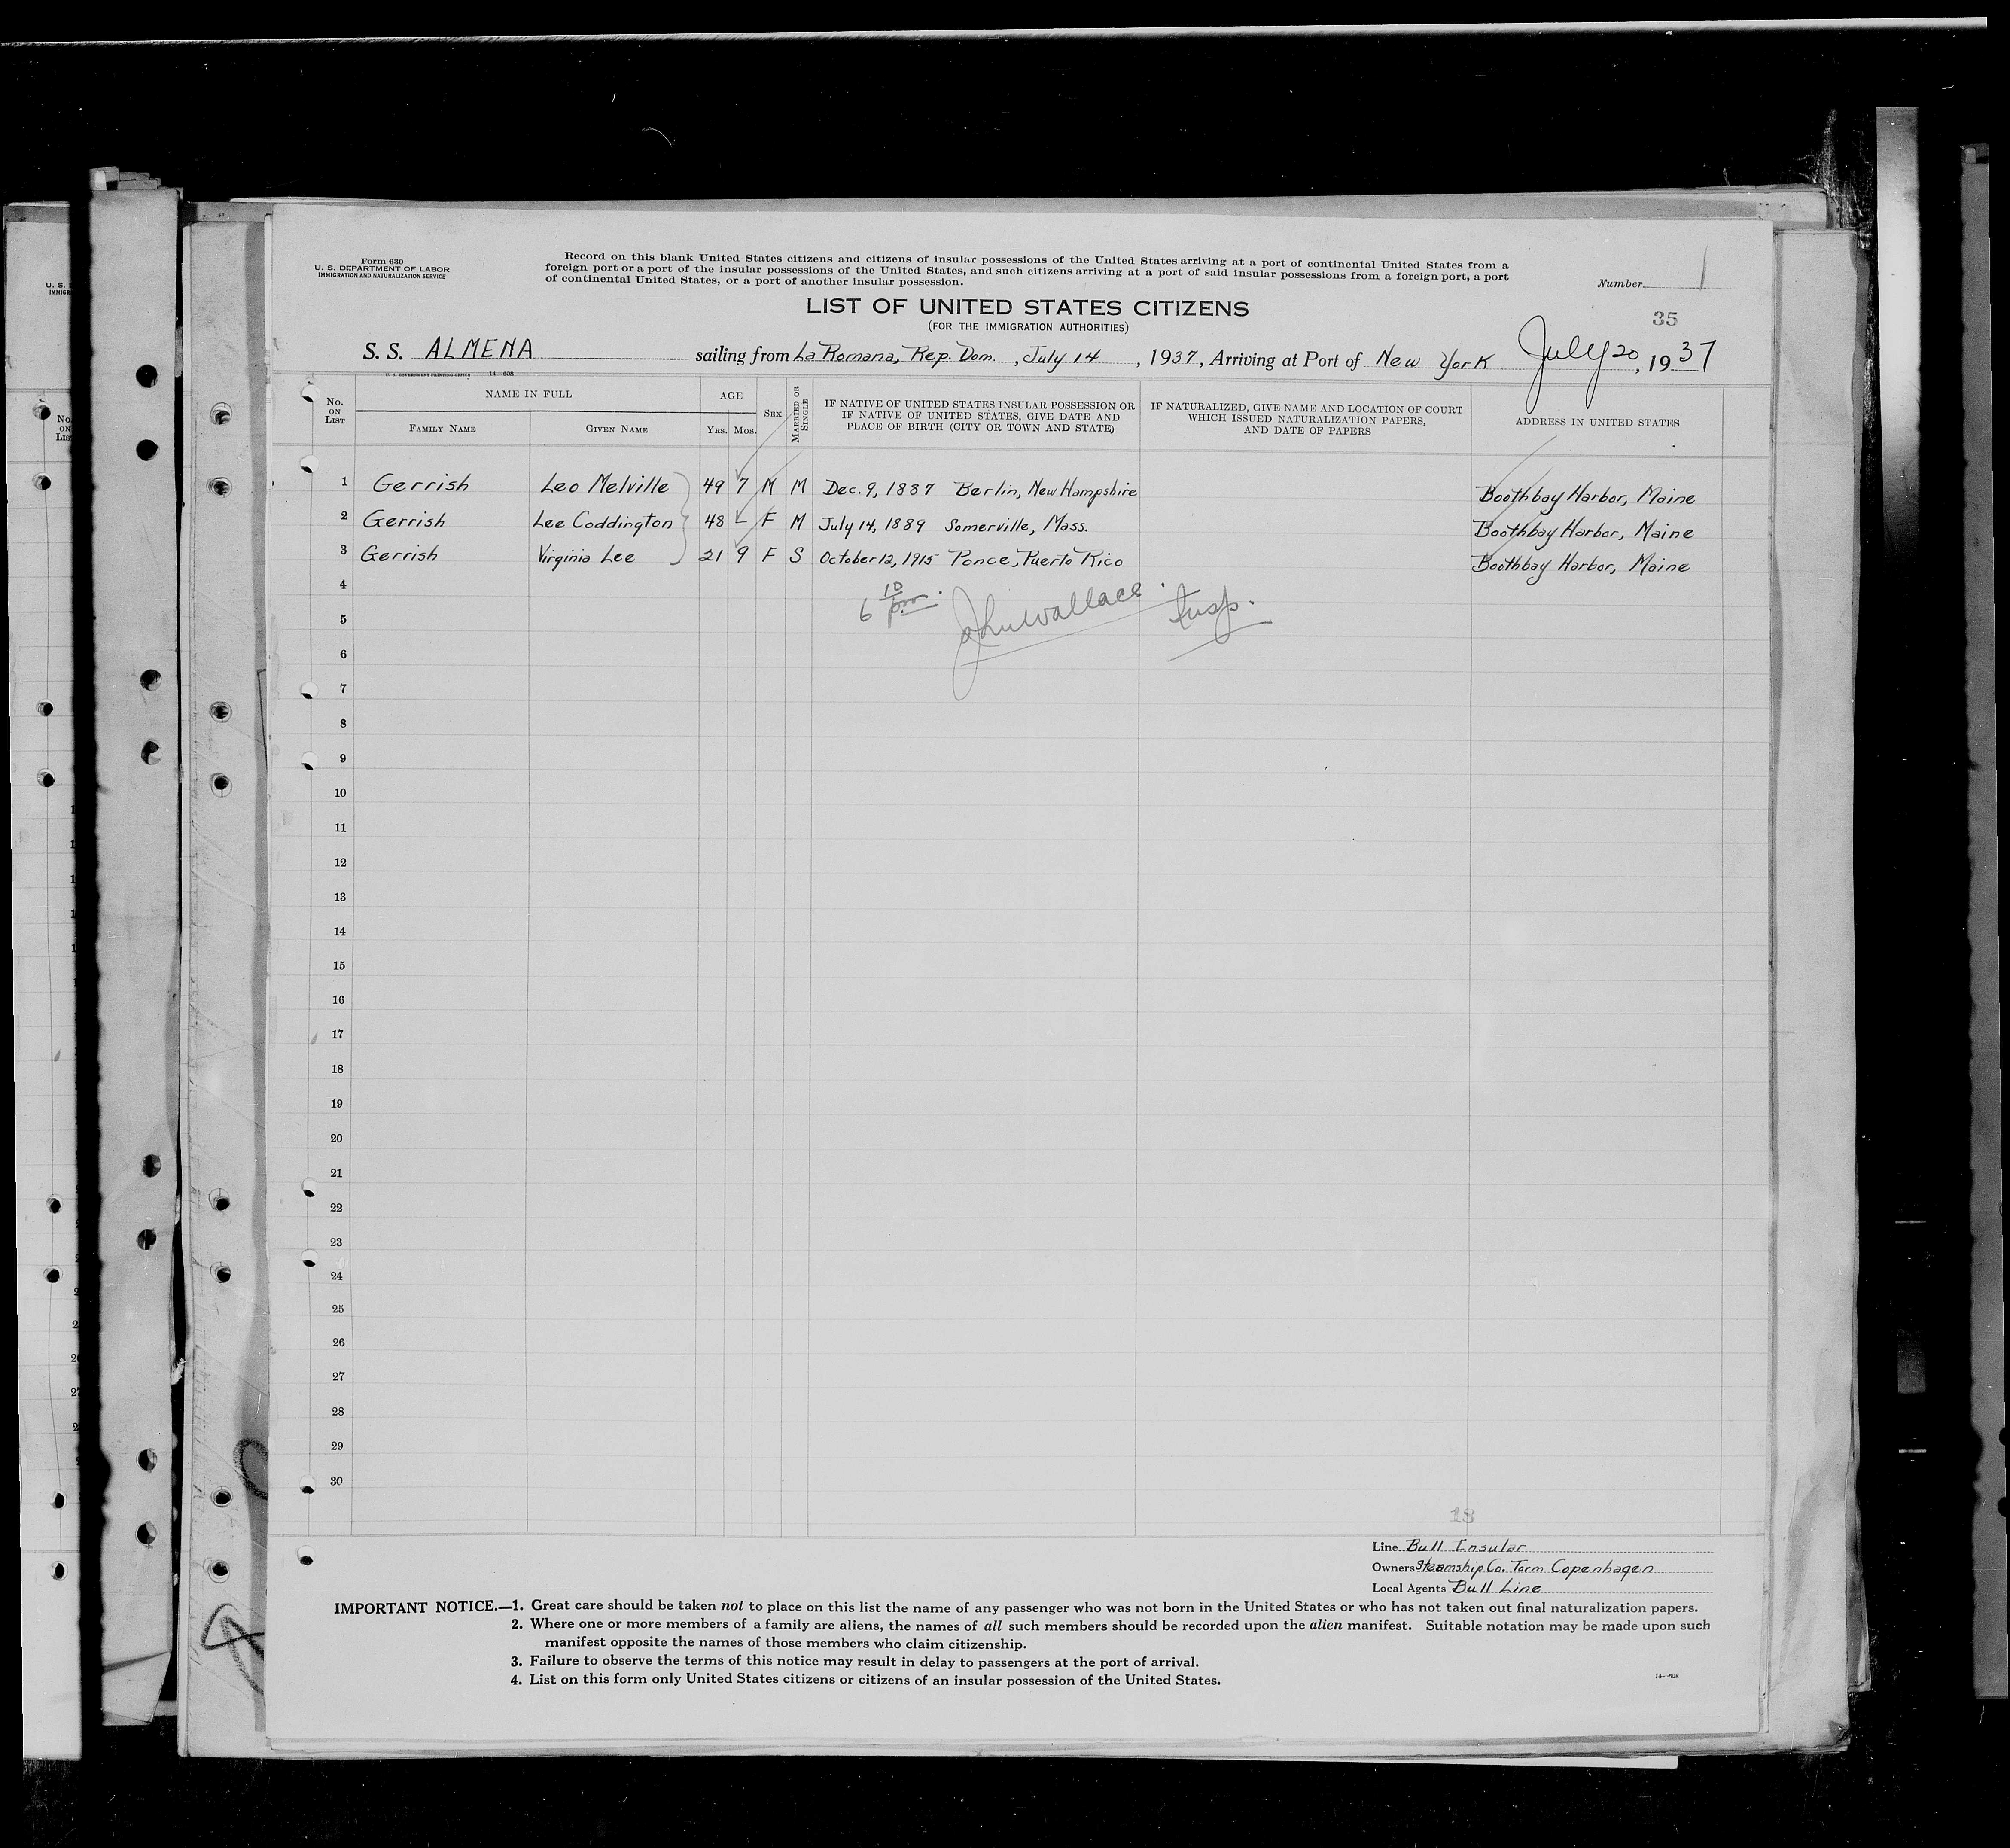 Form 630
U. S. DEPARTMENT OF LABOR
IMMIGRATION AND NATURALIZATION SERVICE
Record on this blank United States citizens and citizens of insular possessions of the United States arriving at a port of continental United States from a
foreign port or a port of the insular possessions of the United States, and such citizens arriving at a port of said insular possessions from a foreign port, a port
of continental United States, or a port of another insular possession.
Number 1
LIST OF UNITED STATES CITIZENS
35
(FOR THE IMMIGRATION AUTHORITIES)
S. S. ALMENA sailing from La Romana, Rep. Dom., July 14, 1937, Arriving at Port of New York July 20, 1937
U. S. GOVERNMENT PRINTING OFFICE 14-608
No. ON LIST
NAME IN FULL
FAMILY NAME
GIVEN NAME
AGE
YRS. MOS.
SEX
MARRIED OR SINGLE
IF NATIVE OF UNITED STATES INSULAR POSSESSION OR
IF NATIVE OF UNITED STATES, GIVE DATE AND
PLACE OF BIRTH (CITY OR TOWN AND STATE)
IF NATURALIZED, GIVE NAME AND LOCATION OF COURT
WHICH ISSUED NATURALIZATION PAPERS,
AND DATE OF PAPERS
ADDRESS IN UNITED STATES
1 Gerrish Leo Melville 49 7 M M Dec. 9, 1887 Berlin, New Hampshire Boothbay Harbor, Maine
2 Gerrish Lee Coddington 48 - F M July 14, 1889 Somerville, Mass. Boothbay Harbor, Maine
3 Gerrish Virginia Lee 21 9 F S October 12, 1915 Ponce, Puerto Rico Boothbay Harbor, Maine
4
6 10 pm. John Wallace Insp.
5
6
7
8
9
10
11
12
13
14
15
16
17
18
19
20
21
22
23
24
25
26
27
28
29
30
13
Line Bull Insular
Owners Steamship Co. Torm Copenhagen
Local Agents Bull Line
IMPORTANT NOTICE.—1. Great care should be taken not to place on this list the name of any passenger who was not born in the United States or who has not taken out final naturalization papers.
2. Where one or more members of a family are aliens, the names of all such members should be recorded upon the alien manifest. Suitable notation may be made upon such
manifest opposite the names of those members who claim citizenship.
3. Failure to observe the terms of this notice may result in delay to passengers at the port of arrival.
4. List on this form only United States citizens or citizens of an insular possession of the United States.
14-608